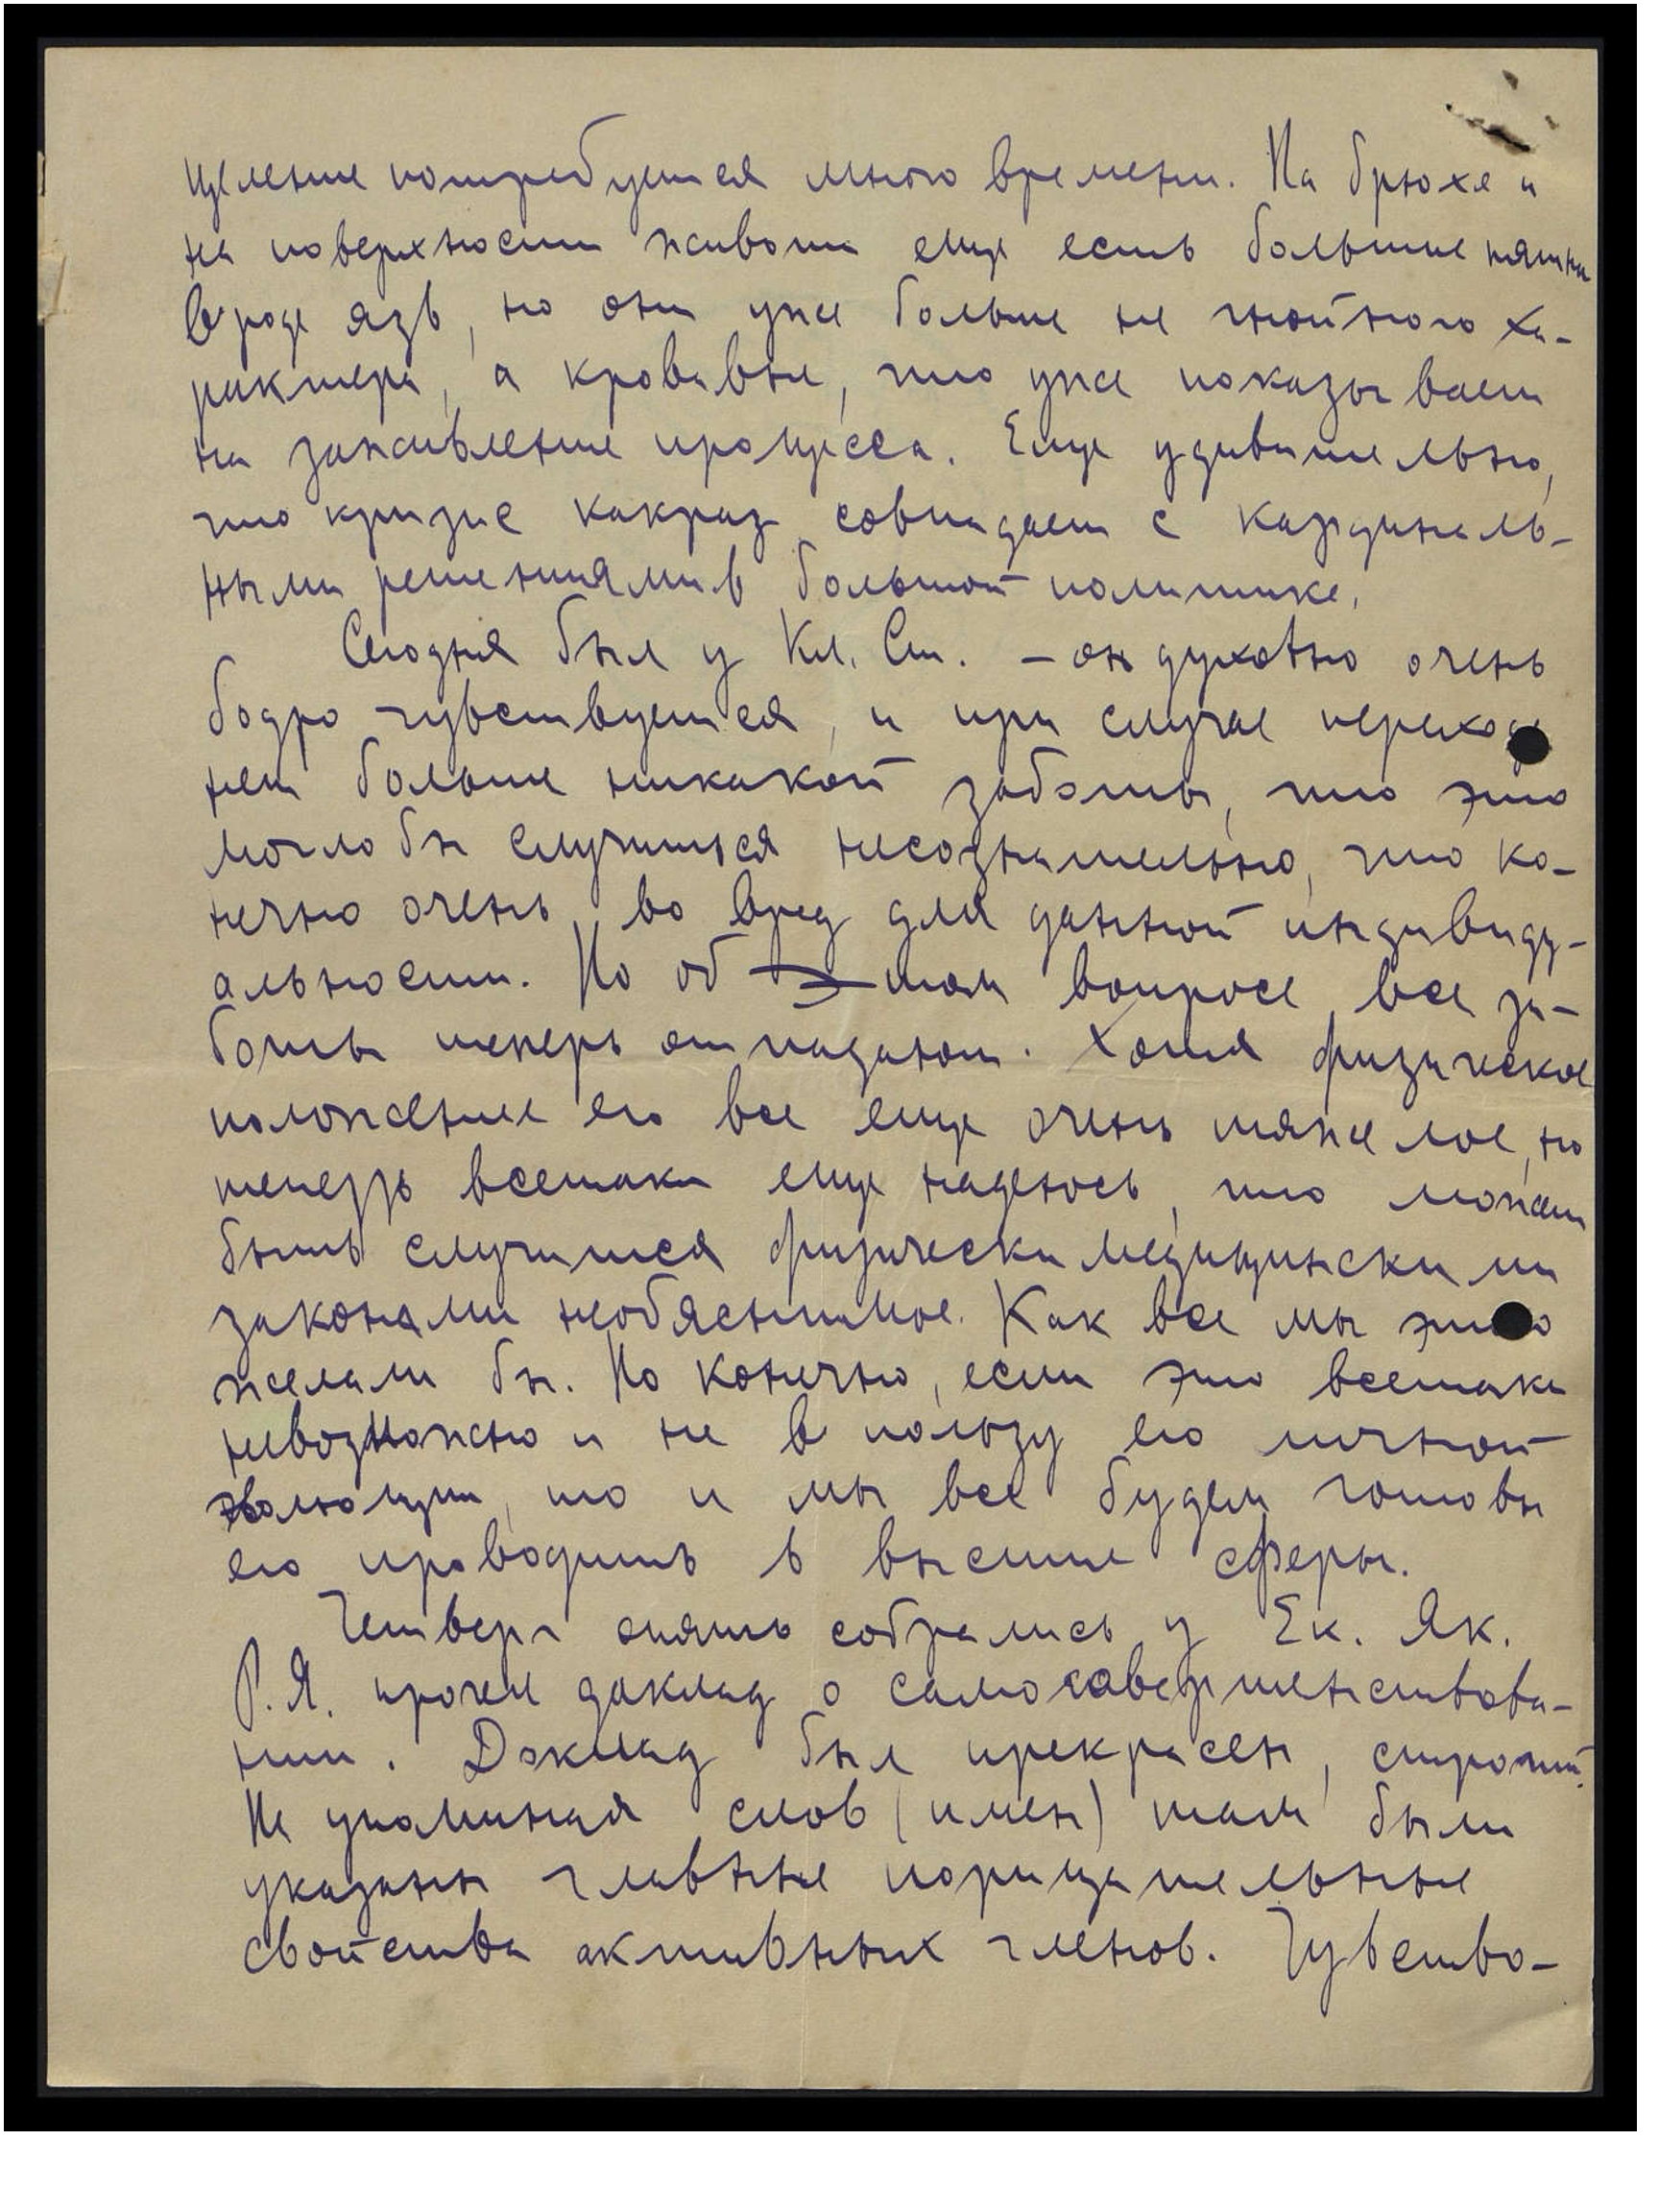 целение потребуется много времени. На брюхе и
на поверхности живота еще есть большие пятна
вроде язв, но они уже больше не гнойного ха-
рактера, а кровавые, что уже показывает
на заживление процесса. Еще удивительно,
что кризис какраз совпадает с кардиналь-
ными решениями в большой политике.
Сегодня был у Кл. Ст. – он духовно очень
бодро чувствуется, и при случае переход
нет больше никакой заботы, что это
могло бы случиться несознательно, что ко-
нечно очень во вред для данной индивиду-
альности. Но об этом вопросе все за-
боты теперь отпадают. Хотя физическое
положение его все еще очень тяжелое, но
теперь всетаки еще надеюсь, что может
быть случится физически медицинскими
законами необяснимое. Как все мы это
желали бы. Но конечно, если это всетаки
невозможно и не в пользу его личной
эволюции, то и мы все будем готовы
его проводить в высшие сферы.
Четверг опять собрались у Ек. Як.
Р.Я. прочел доклад о самосовершенствова-
нии. Доклад был прекрасен, строгий.
Не упоминая слов (имен) там были
указаны главные порицательные
свойства активных членов. Чувство-